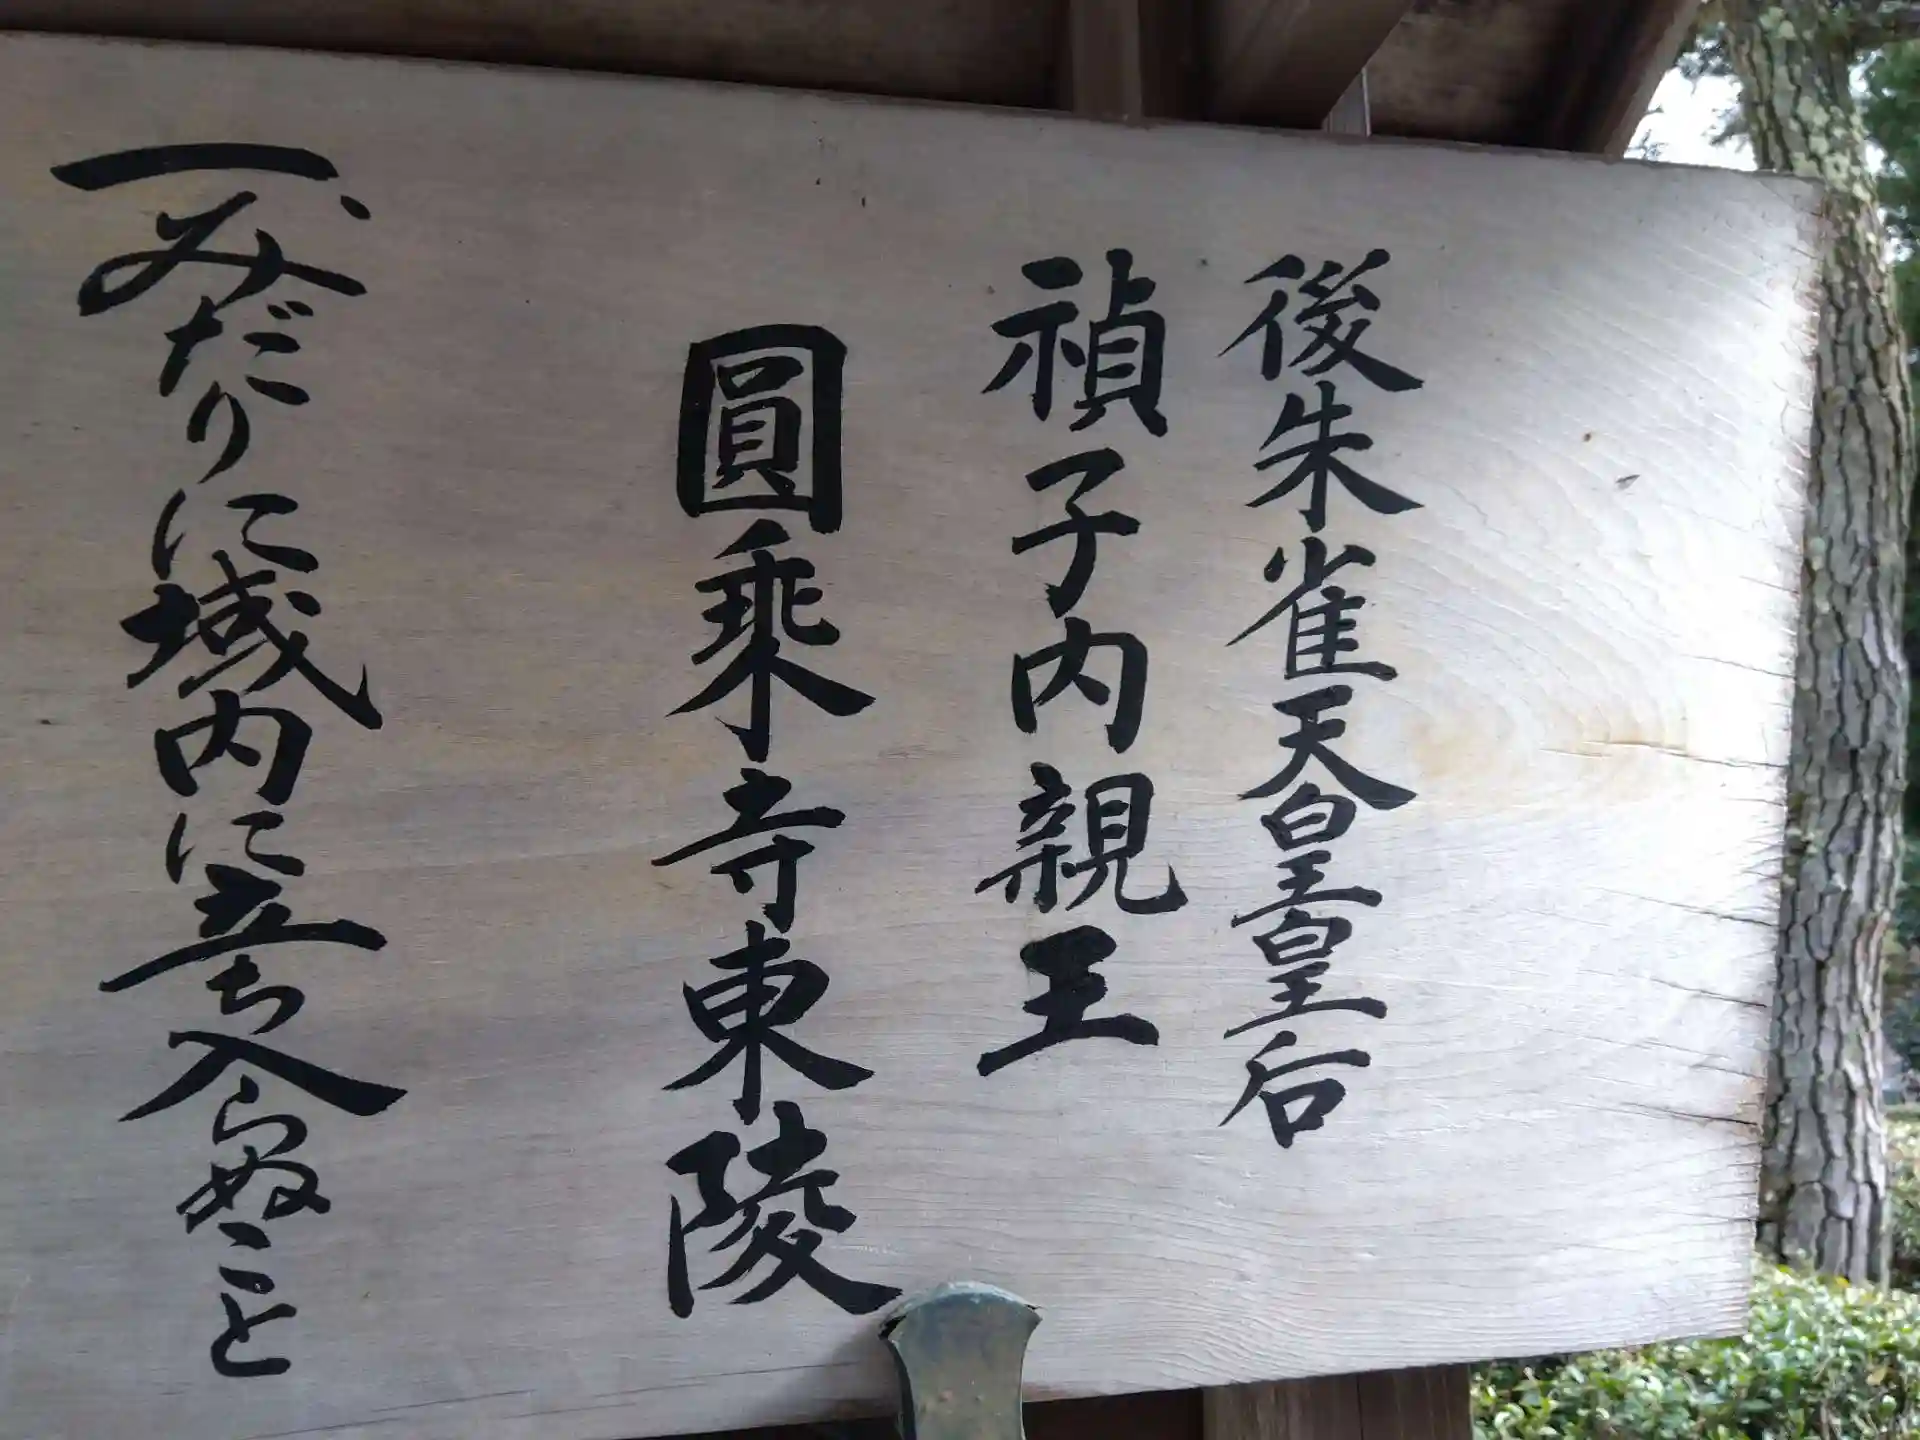 後朱雀天皇皇后
禎子内親王
圓乗寺東陵
一、みだりに域内に立ち入らぬこと